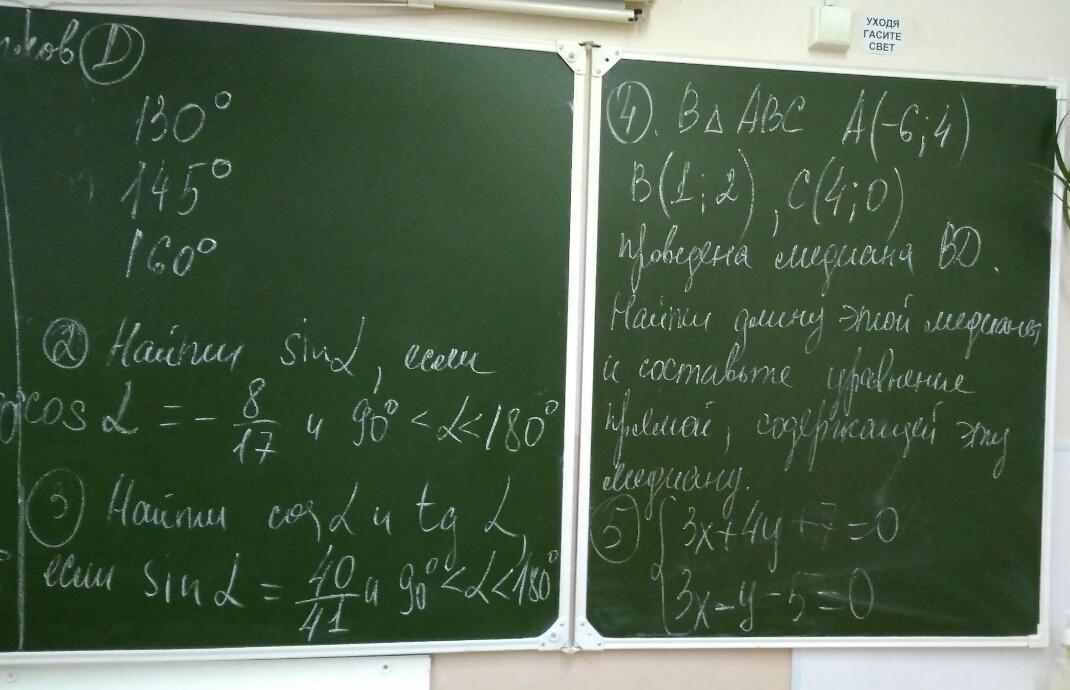 ①
130°
145°
160°
② Найти sin α, если
cos α = - 8/17 и 90° < α < 180°
③ Найти cos α и tg α,
если sin α = 40/41 и 90° < α < 180°
УХОДЯ
ГАСИТЕ
СВЕТ
④. В △ ABC A(-6; 4)
B(1; 2), C(4; 0)
проведена медиана BD.
Найти длину этой медианы
и составьте уравнение
прямой, содержащей эту
медиану.
⑤ { 3x + 4y + 7 = 0
3x - y - 5 = 0